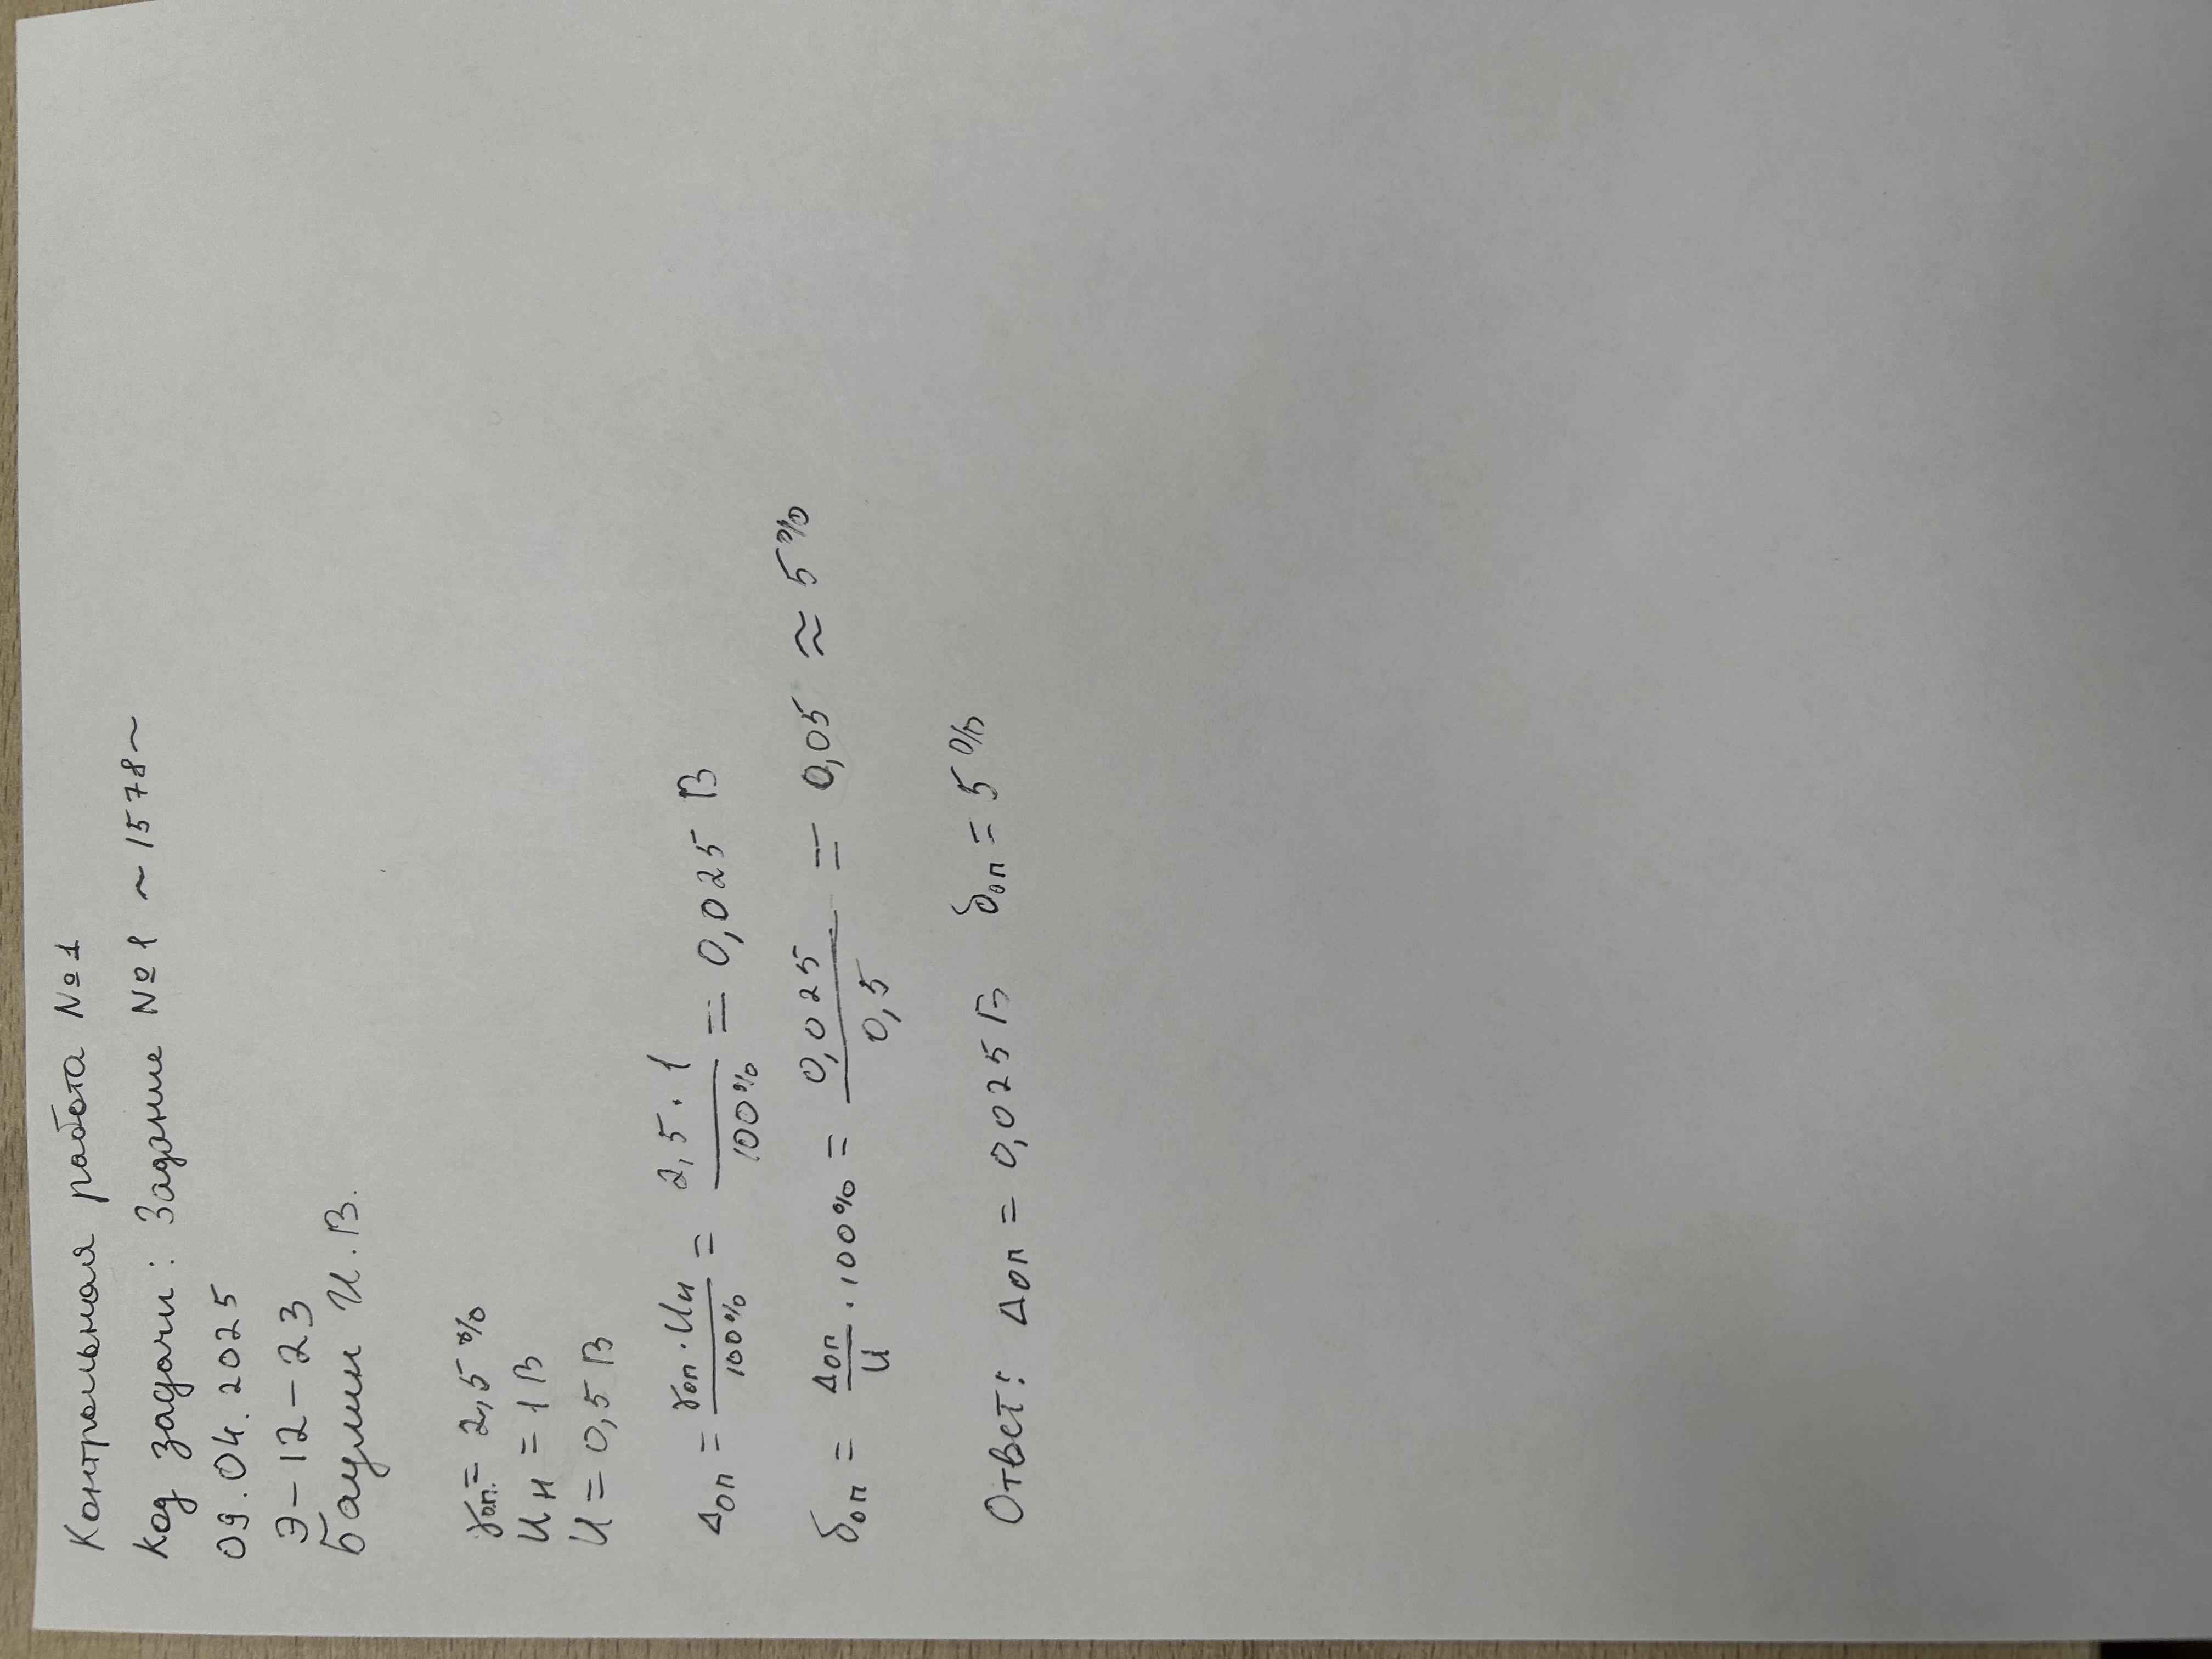 Контрольная работа №1
Код задачи: Задание №1 ~1578~
09.04.2025
Э-12-23
Баулин И.В.
γоп. = 2,5%
Uн = 1 В
U = 0,5 В
Δоп = γоп·Uн / 100% = 2,5·1 / 100% = 0,025 В
δоп = Δоп / U · 100% = 0,025 / 0,5 = 0,05 ≈ 5%
Ответ: Δоп = 0,025 В δоп = 5%